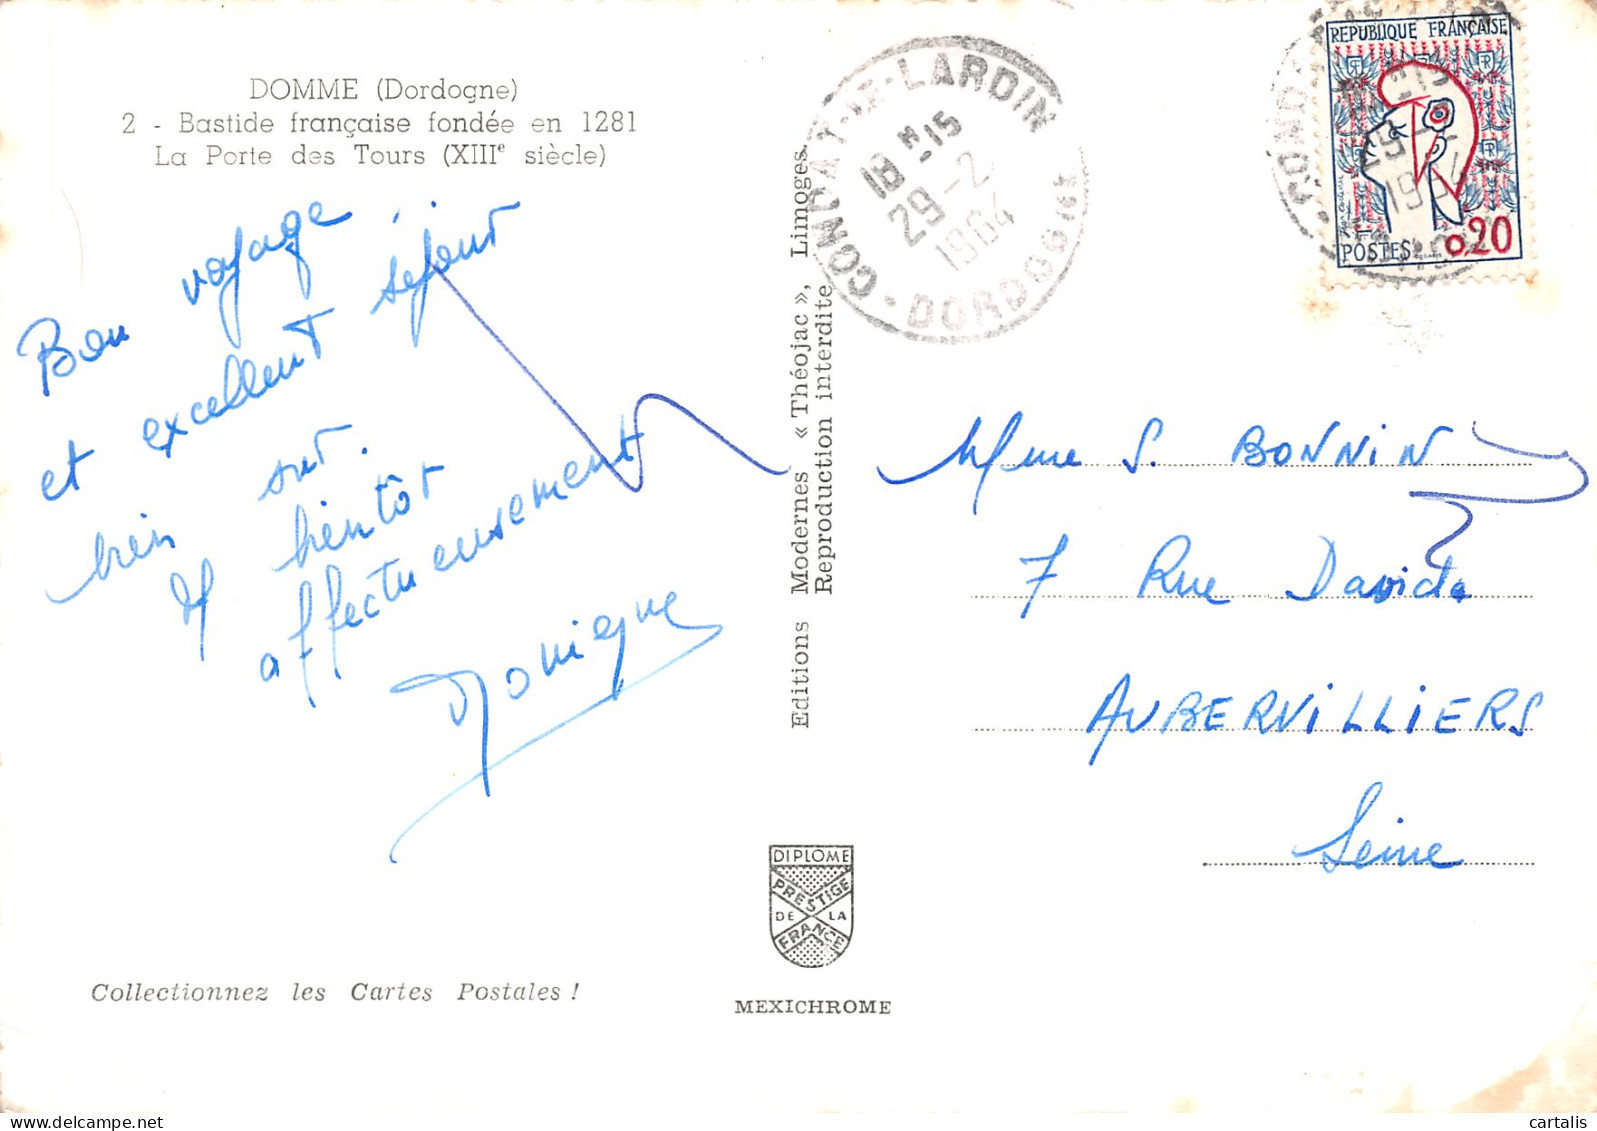 DOMME (Dordogne)
2 - Bastide française fondée en 1281
La Porte des Tours (XIIIe siècle)
Bon voyage
et excellent séjour
bien sur.
A bientôt
affectueusement
Monique
Collectionnez les Cartes Postales !
Editions Modernes « Théojac », Limoges
Reproduction interdite
DIPLOME
PRESTIGE
DE LA
FRANCE
MEXICHROME
CONDAT-LE-LARDIN
18H-15
29-2
1964
DORDOGNE
REPUBLIQUE FRANÇAISE
POSTES 0,20
Mme S. BONNIN
7 Rue David
AUBERVILLIERS
Seine
cartalis